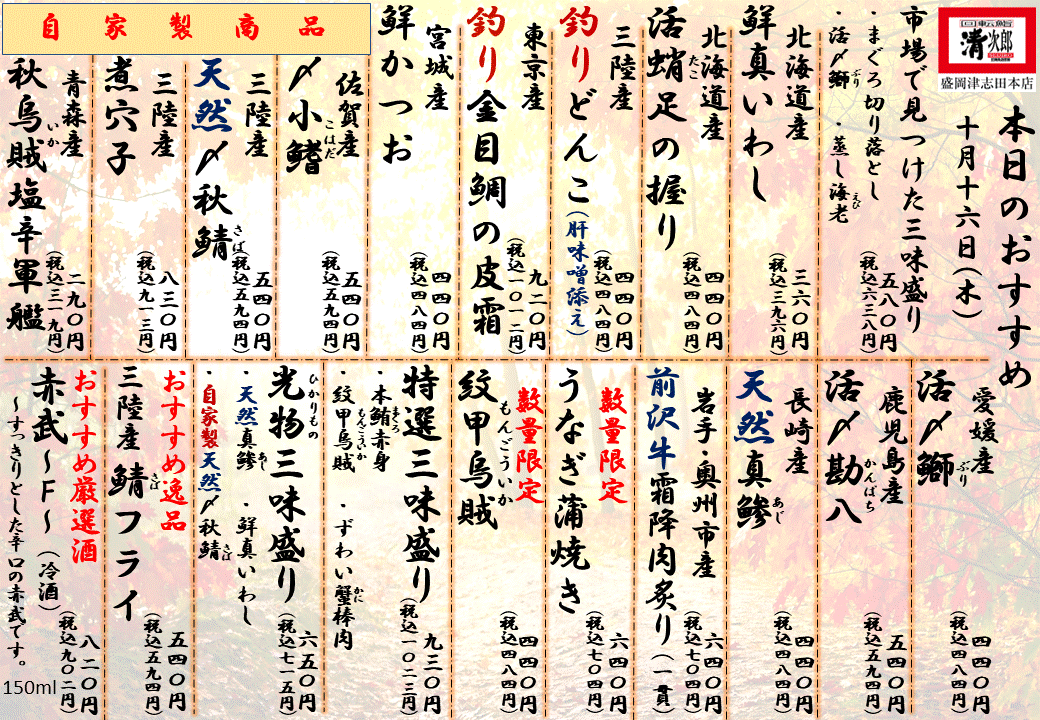 回転鮨
清次郎
盛岡津志田本店
本日のおすすめ
十月十六日(木)
市場で見つけた三味盛り
・まぐろ切り落とし
・活〆鰤 ・蒸し海老
ぶり
えび
五八〇円
(税込六三八円)
北海道産
鮮真いわし
三六〇円
(税込三九六円)
北海道産
活蛸足の握り
たこ
四四〇円
(税込四八四円)
三陸産
釣りどんこ(肝味噌添え)
四四〇円
(税込四八四円)
東京産
釣り金目鯛の皮霜
九二〇円
(税込一〇一二円)
宮城産
鮮かつお
四四〇円
(税込四八四円)
自家製商品
佐賀産
〆小鰭
こはだ
五四〇円
(税込五九四円)
三陸産
天然〆秋鯖
さば
五四〇円
(税込五九四円)
三陸産
煮穴子
八三〇円
(税込九一三円)
青森産
秋烏賊塩辛軍艦
いか
二九〇円
(税込三一九円)
愛媛産
活〆鰤
ぶり
四四〇円
(税込四八四円)
鹿児島産
活〆勘八
かんぱち
五四〇円
(税込五九四円)
長崎産
天然真鯵
あじ
四四〇円
(税込四八四円)
岩手・奥州市産
前沢牛霜降肉炙り(一貫)
六四〇円
(税込七〇四円)
数量限定
うなぎ蒲焼き
六四〇円
(税込七〇四円)
数量限定
紋甲烏賊
もんごういか
四四〇円
(税込四八四円)
特選三味盛り
・本鮪赤身
まぐろ
・紋甲烏賊 ・ずわい蟹棒肉
もんごういか
かに
九三〇円
(税込一〇二三円)
光物三味盛り
ひかりもの
・天然真鯵 ・鮮真いわし
あじ
・自家製天然〆秋鯖
さば
六五〇円
(税込七一五円)
おすすめ逸品
三陸産 鯖フライ
さば
五四〇円
(税込五九四円)
おすすめ厳選酒
赤武～F～(冷酒)
～すっきりとした辛口の赤武です。
八二〇円
(税込九〇二円)
150ml